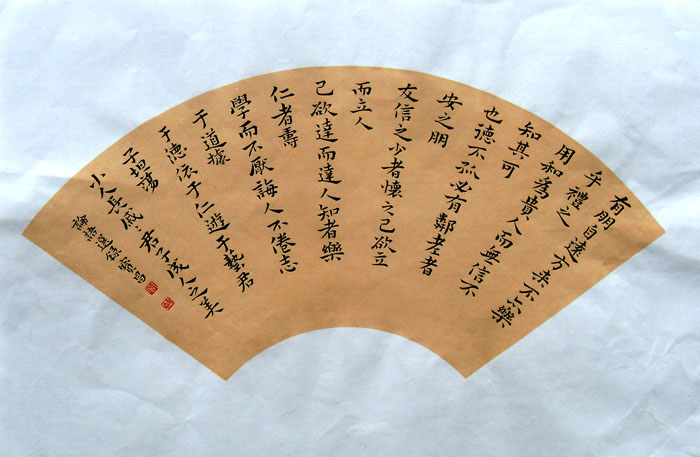 有朋自遠方来不亦樂
乎禮之
用和為貴人而無信不
知其可
也德不孤必有鄰老者
安之朋
友信之少者懷之己欲立
而立人
己欲達而達人知者樂
仁者壽
學而不厭誨人不倦志
于道據
于德依于仁遊于藝君
子坦蕩
小人長戚〻君子成人之美
論語選錄